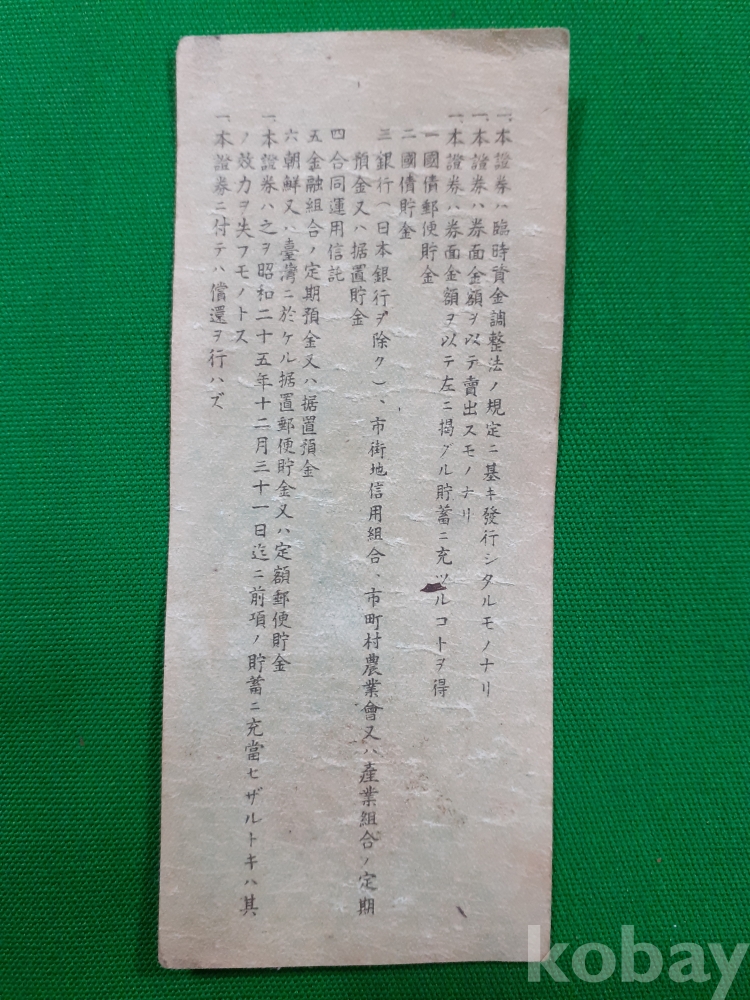 一、本證券ハ臨時資金調整法ノ規定ニ基キ發行シタルモノナリ
一、本證券ハ券面金額ヲ以テ賣出スモノナリ
一、本證券ハ券面金額ヲ以テ左ニ揭グル貯蓄ニ充ツルコトヲ得
一 國債郵便貯金
二 國債貯金
三 銀行(日本銀行ヲ除ク)、市街地信用組合、市町村農業會又ハ產業組合ノ定期
預金又ハ据置貯金
四 合同運用信託
五 金融組合ノ定期預金又ハ据置預金
六 朝鮮又ハ臺灣ニ於ケル据置郵便貯金又ハ定額郵便貯金
一、本證券ハ之ヲ昭和二十五年十二月三十一日迄ニ前項ノ貯蓄ニ充當セザルトキハ其
ノ效力ヲ失フモノトス
一、本證券ニ付テハ償還ヲ行ハズ
kobay